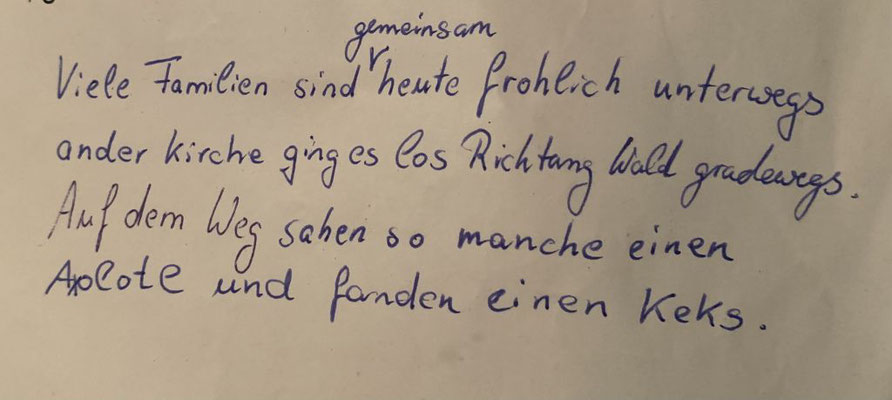 gemeinsam
Viele Familien sind heute frohlich unterwegs
ander kirche ging es los Richtang Wald gradewegs.
Auf dem Weg sahen so manche einen
und fanden einen Keks.